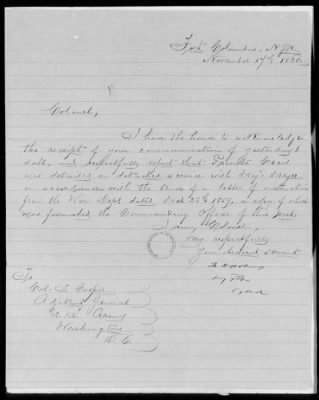 Fort Columbus, N.Y.H.
November 17th 1860.
Colonel,
I have the honor to acknowledge
the receipt of your communication of yesterday's
date, and respectfully report that Private Good
was detailed on detached service with Maj. Myer
in accordance with the tenor of a letter of instruction
from the War Dept dated Oct. 22d 1859, a copy of which
was furnished the Commanding Officer of this post.
I am, Colonel,
Very respectfully
Your obedient servant
To
Col. S. Cooper
Adjutant General
U.S. Army
Washington
D.C.